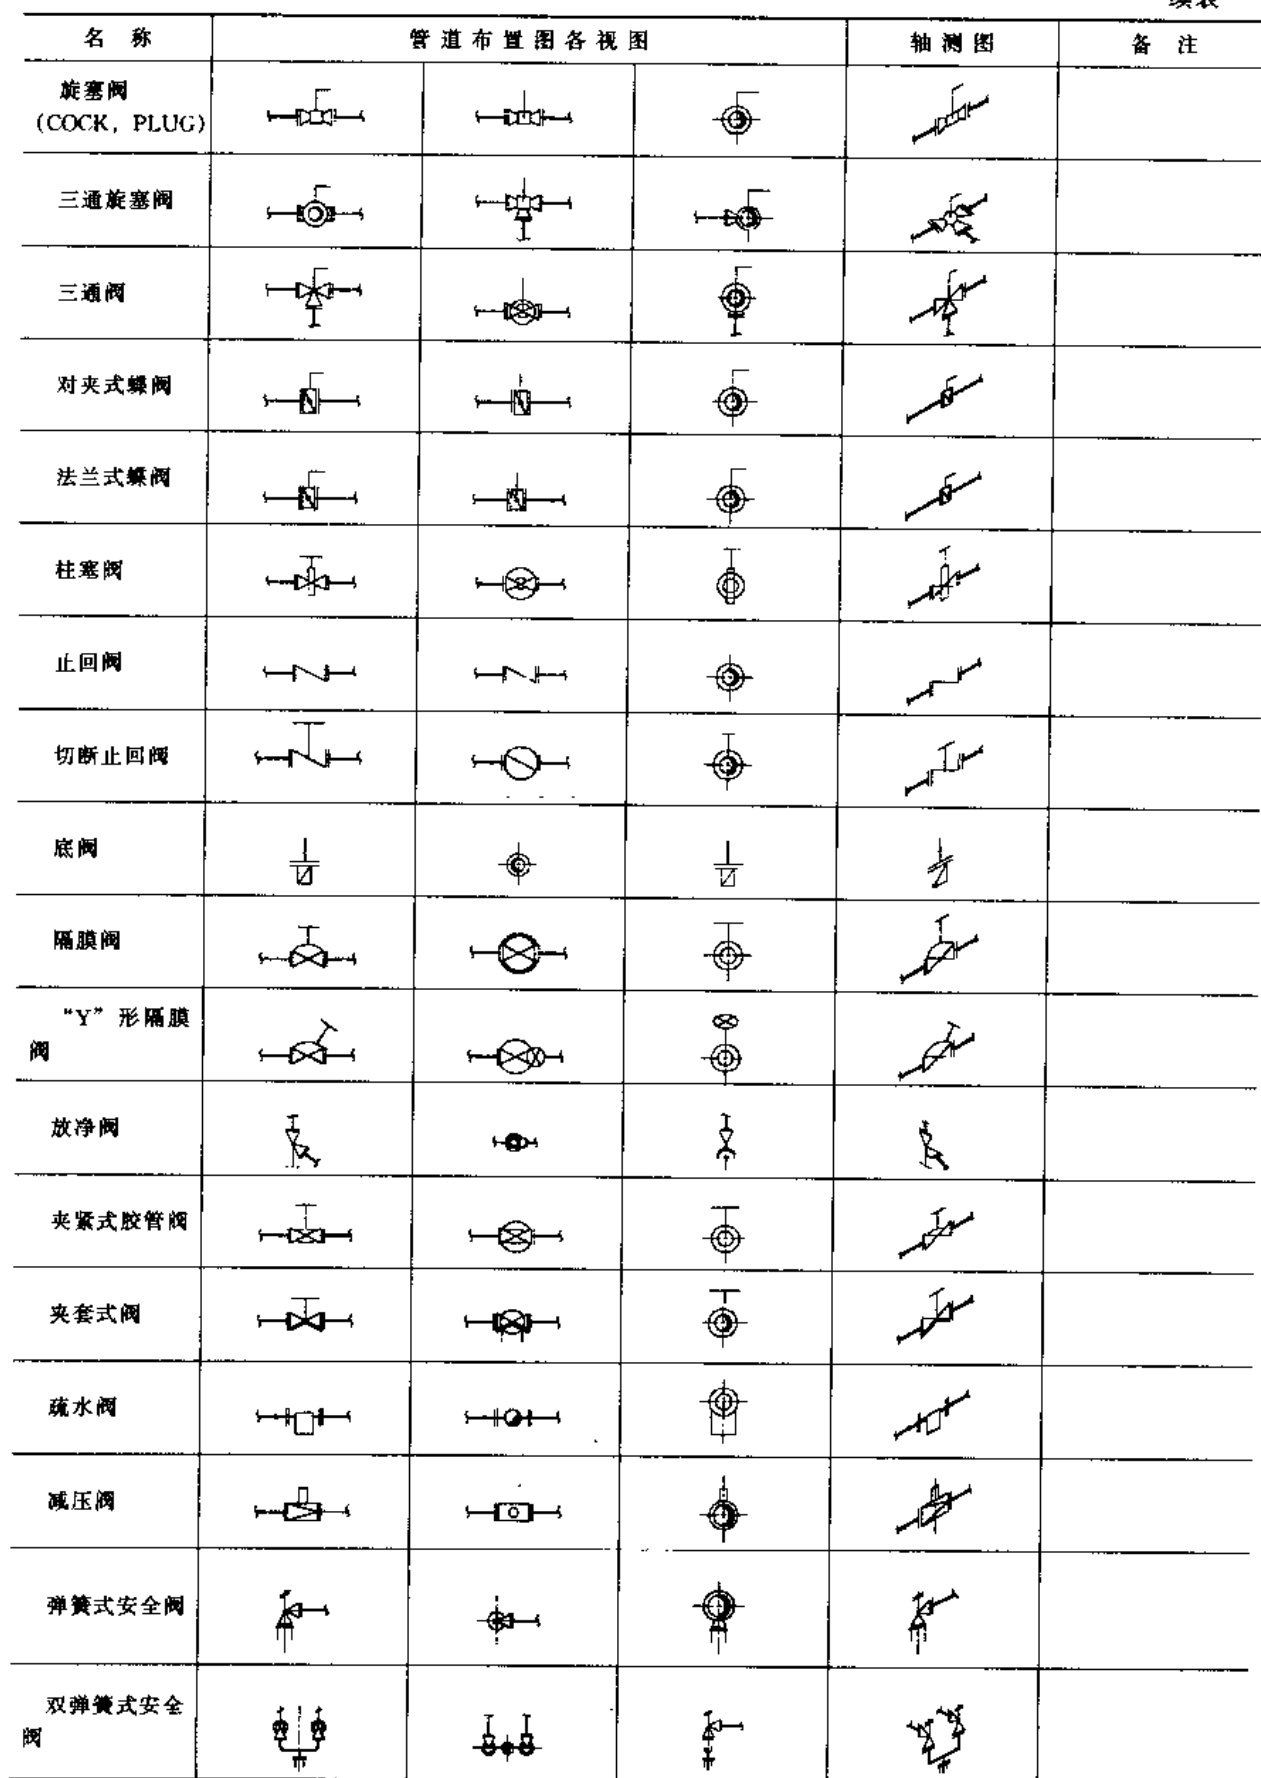 续表
名 称 管道布置图各视图 轴测图 备 注
旋塞阀
(COCK, PLUG)
三通旋塞阀
三通阀
对夹式蝶阀
法兰式蝶阀
柱塞阀
止回阀
切断止回阀
底阀
隔膜阀
“Y”形隔膜
阀
放净阀
夹紧式胶管阀
夹套式阀
疏水阀
减压阀
弹簧式安全阀
双弹簧式安全
阀